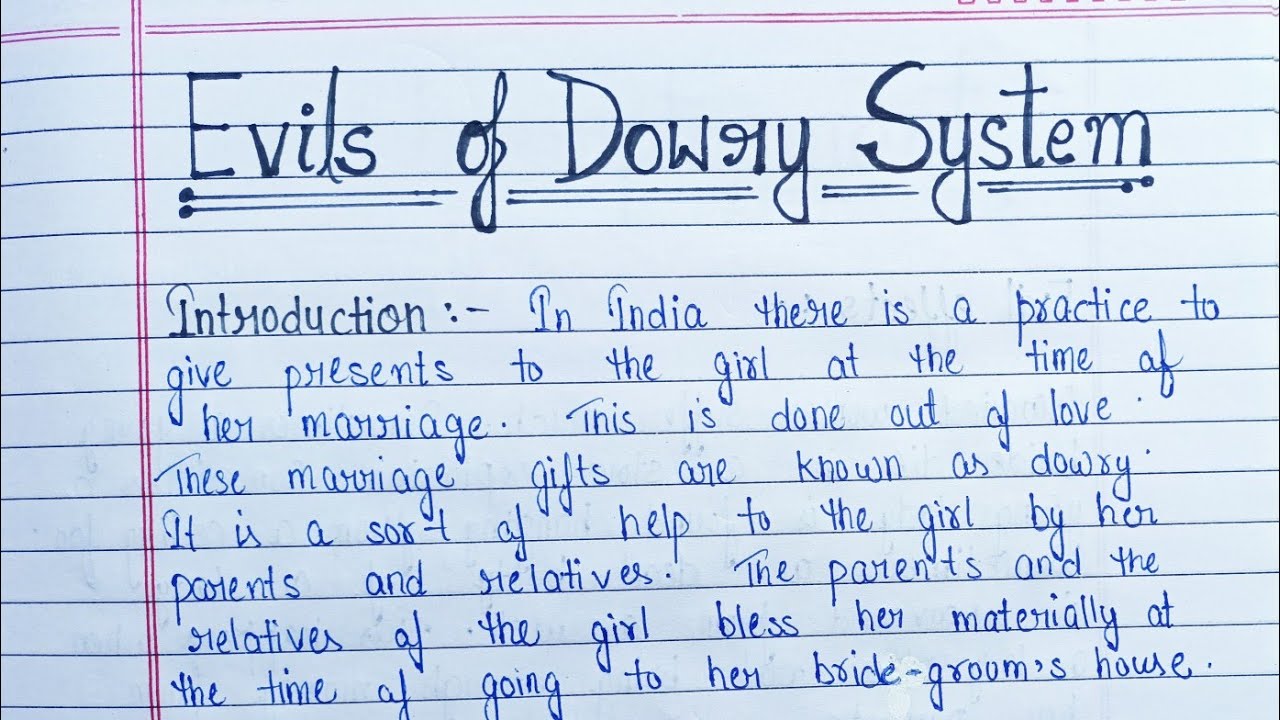 Evils of Dowry System
Introduction :- In India there is a practice to
give presents to the girl at the time of
her marriage. This is done out of love.
These marriage gifts are known as dowry.
It is a sort of help to the girl by her
parents and relatives. The parents and the
relatives of the girl bless her materially at
the time of going to her bride-groom's house.